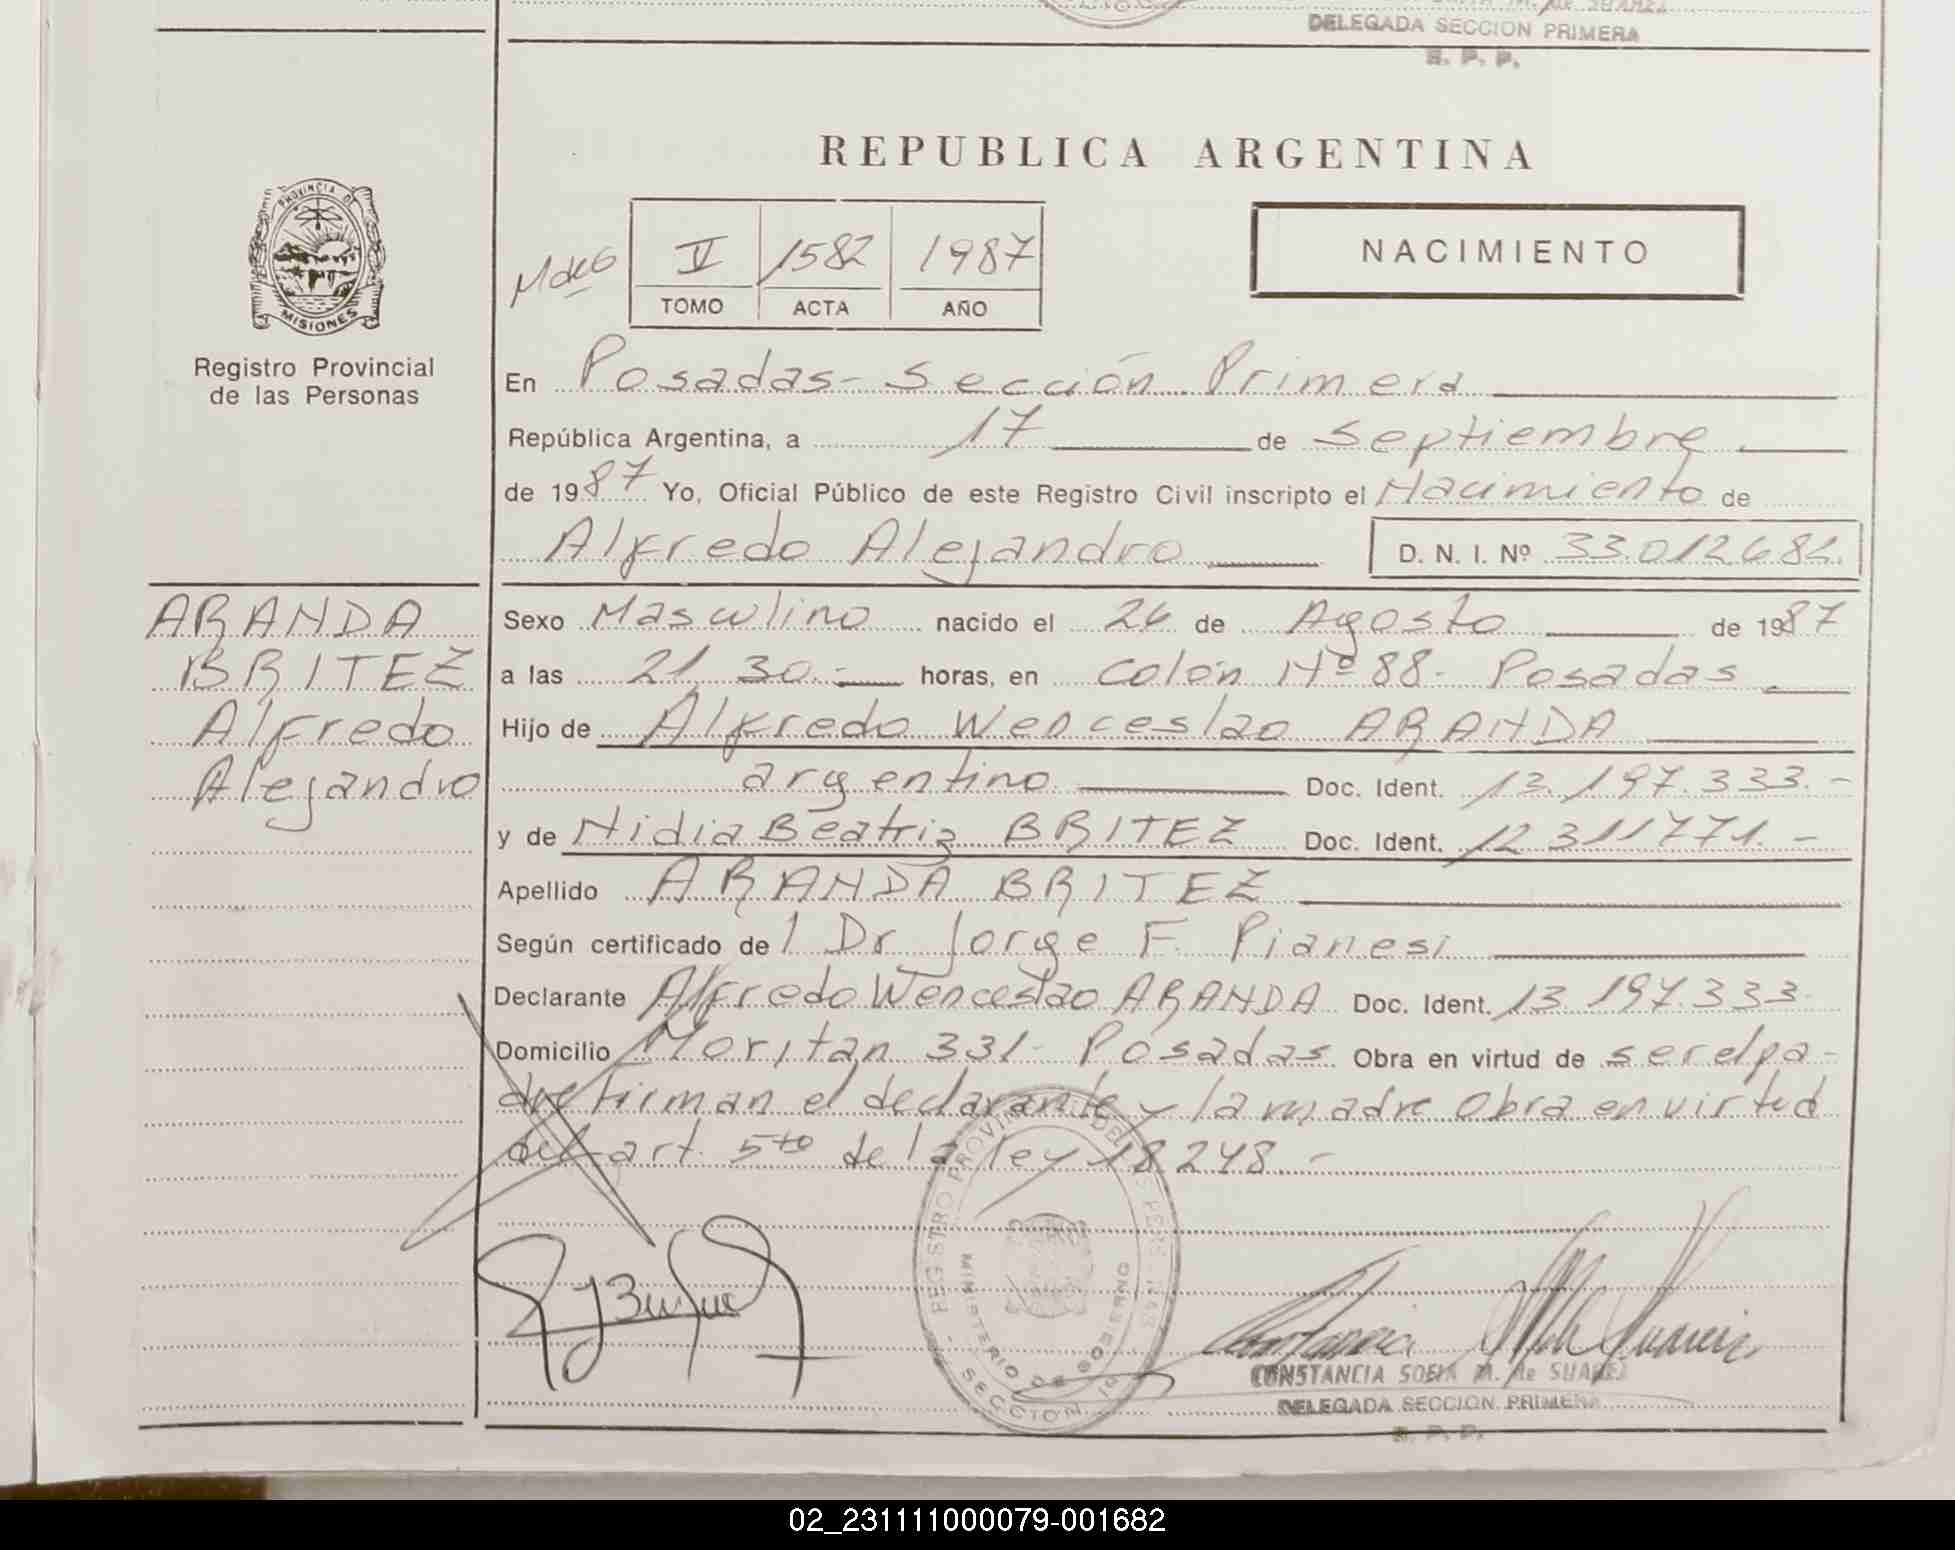 DELEGADA SECCION PRIMERA
R. P. P.
REPUBLICA ARGENTINA
PROVINCIA DE
MISIONES
Registro Provincial
de las Personas
V 1582 1987
TOMO ACTA AÑO
NACIMIENTO
En Posadas - Sección Primera
República Argentina, a 17 de Septiembre
de 1987 Yo, Oficial Público de este Registro Civil inscripto el Nacimiento de
Alfredo Alejandro D. N. I. Nº 33.012.682.
ARANDA
BRITEZ
Alfredo
Alejandro
Sexo Masculino nacido el 26 de Agosto de 1987
a las 21 30.- horas, en Colón Nº 88- Posadas
Hijo de Alfredo Wenceslao ARANDA
argentino Doc. Ident. 13.197.333.-
y de Nidia Beatriz BRITEZ Doc. Ident. 12 311771.-
Apellido ARANDA BRITEZ
Según certificado de l Dr Jorge F. Pianesi
Declarante Alfredo Wenceslao ARANDA Doc. Ident. 13.197.333.
Domicilio Moritan 331- Posadas Obra en virtud de ser el pa-
dre firman el declarante y la madre Obra en virtud
del art. 5to de la ley 18.248.-
REGISTRO PROVINCIAL DE LAS PERSONAS
MINISTERIO DE GOBIERNO
SECCION 1º
CONSTANCIA SOFIA M. de SUAREZ
DELEGADA SECCION PRIMERA
R. P. P.
02_231111000079-001682